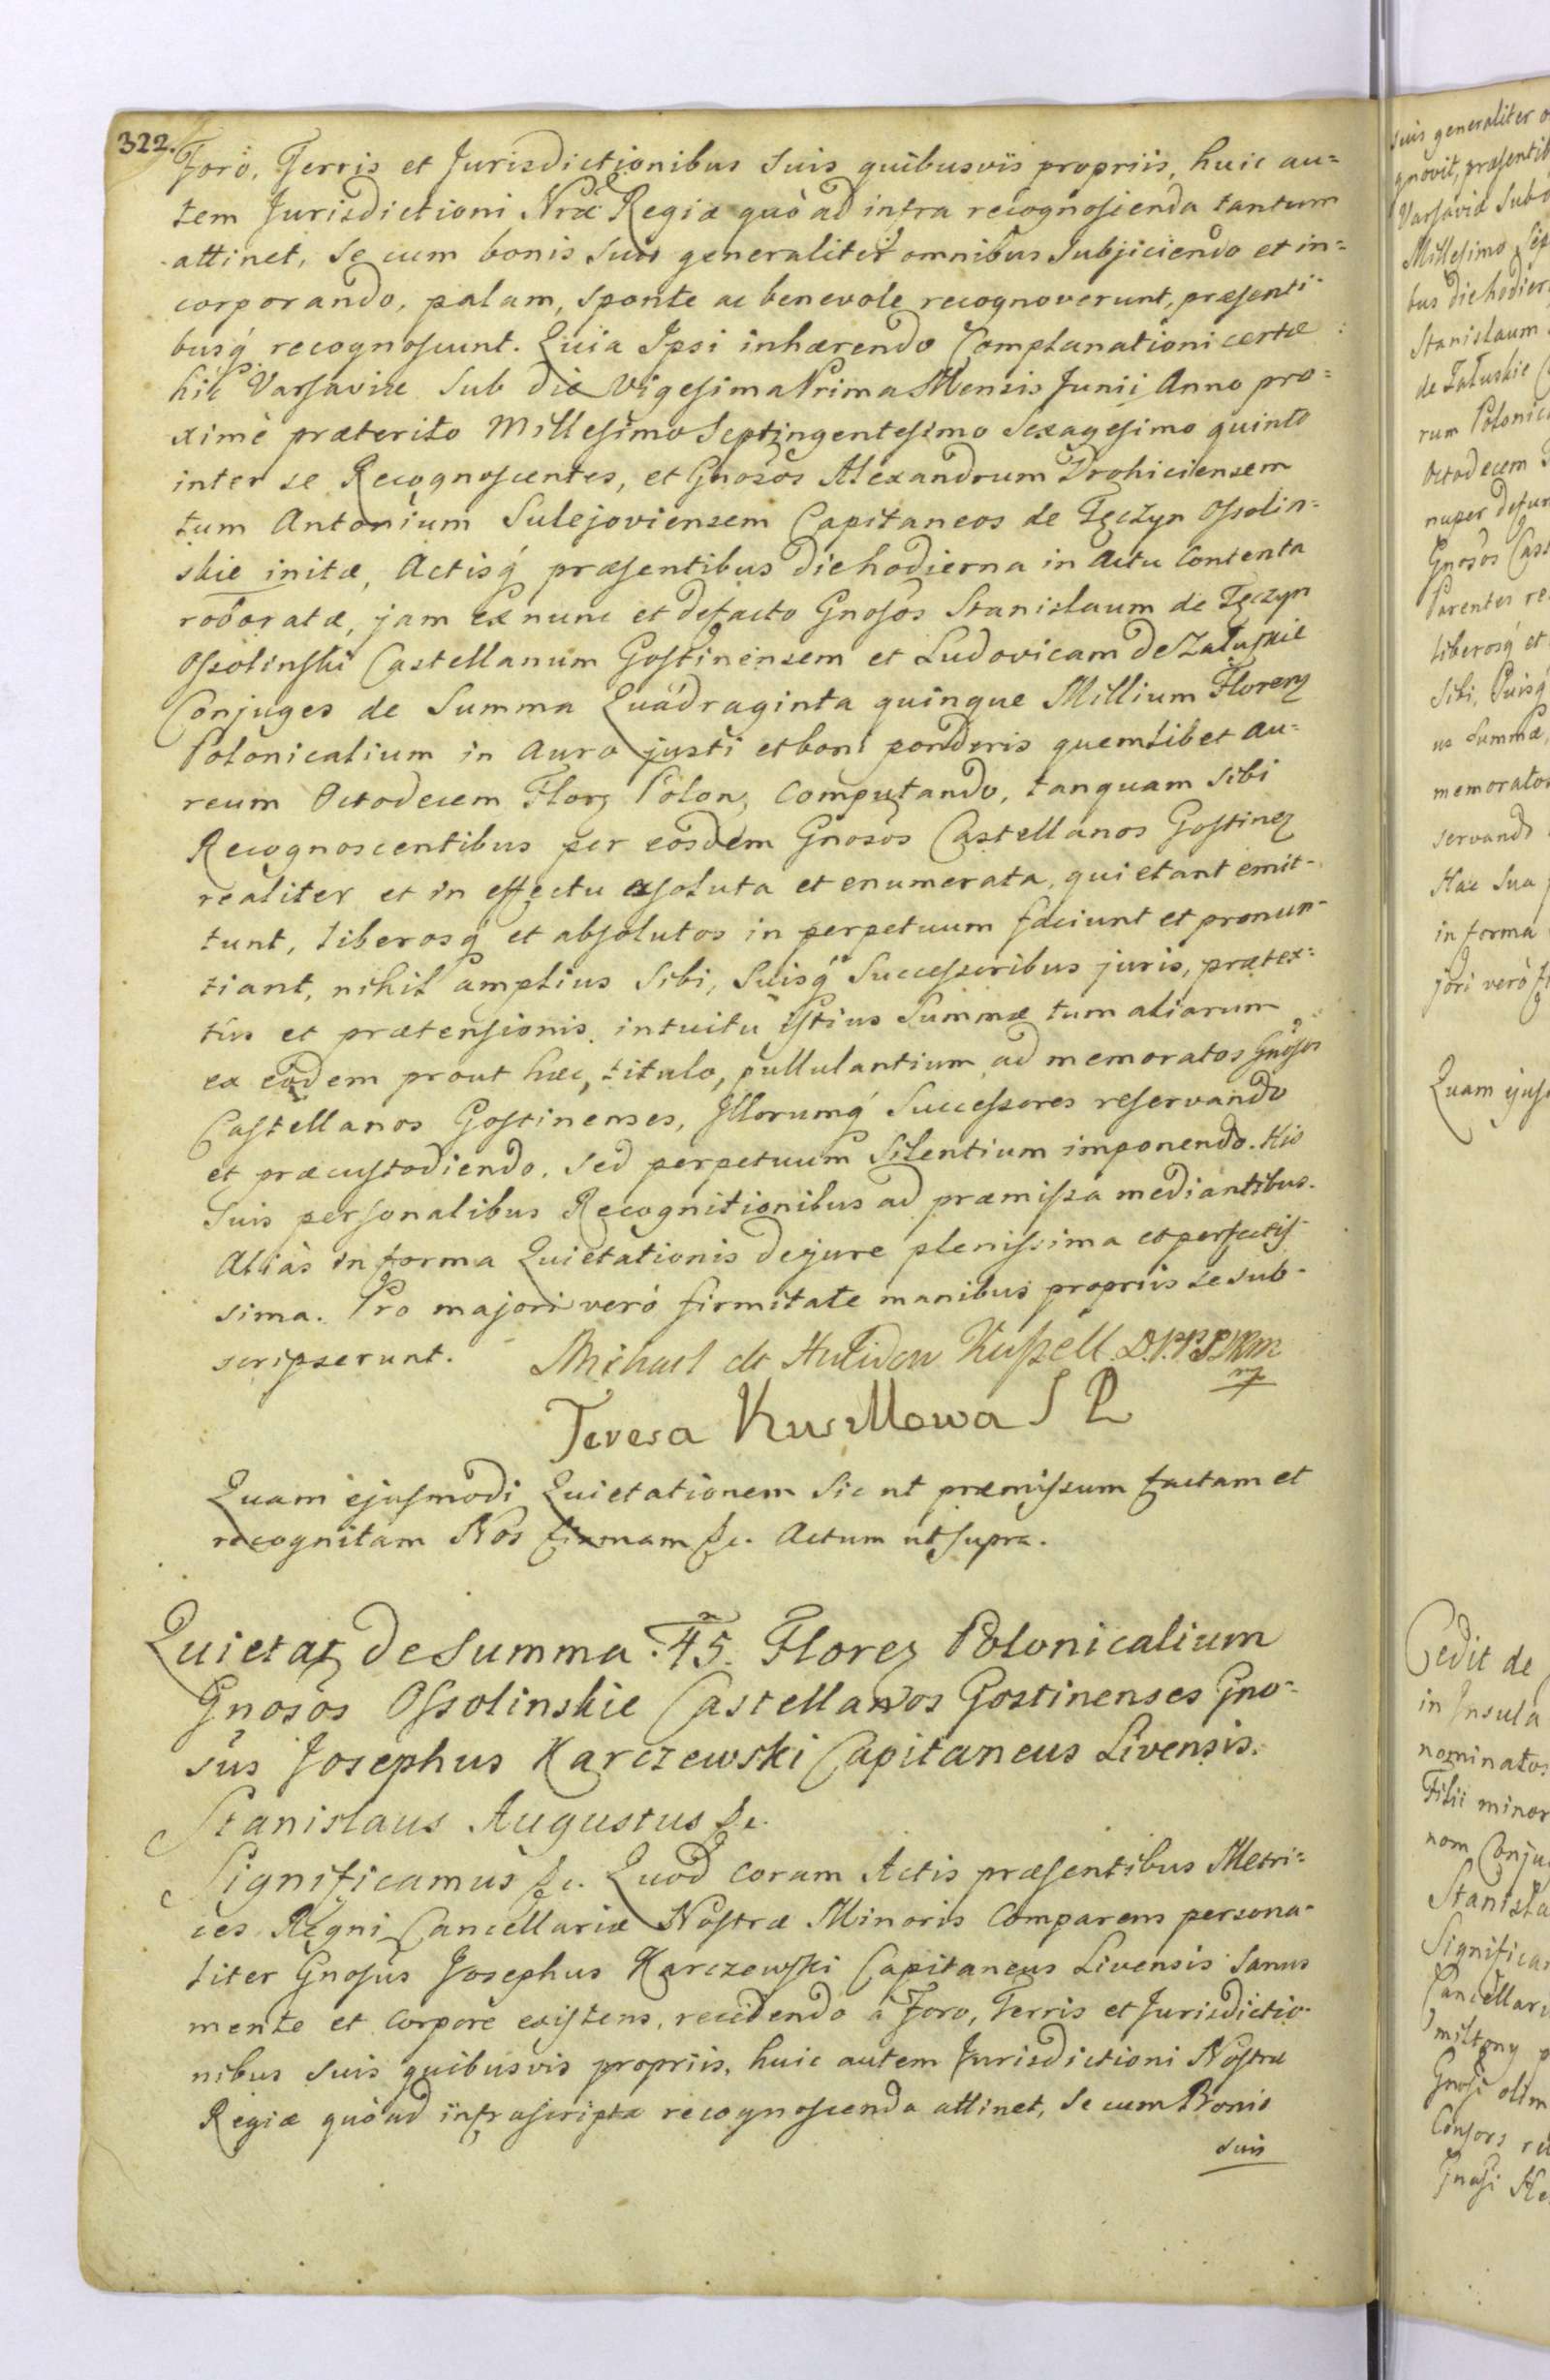 322.
Foro, Terris et Jurisdictionibus suis quibusvis propriis, huic au=
tem Jurisdictioni Nræ Regiæ quò ad infra recognoscenda tantum
attinet, se cum bonis suis generaliter omnibus subjiciendo et in=
corporando, palam, sponte ac benevole recognoverunt, præsenti-
busq́ recognoscunt. Quia Ipsi inhærendo Complanationi certæ
hic Varsaviæ sub die Vigesima Prima Mensis Junii Anno pro=
ximè præterito Millesimo Septingentesimo Sexagesimo quinto
inter se Recognoscentes, et Gnosos Alexandrum Drohiciensem
tum Antonium Sulejoviensem Capitaneos de Tęczyn Ossolin=
skie initæ, Actisq́ præsentibus die hodierna in Actu contenta
roboratæ, jam ex nunc et defacto Gnosos Stanislaum de Tęczyn
Ossolinski Castellanum Gostinensem et Ludovicam de Załuskie
Conjuges de Summa Quadraginta quinque Millium Florenz
Polonicalium in Auro justi et boni ponderis quemlibet au=
reum Octodecem Florz Polonz computando, tanquam sibi
Recognoscentibus per eosdem Gnosos Castellanos Gostinez
realiter et in effectu exsoluta et enumerata, quietant emit-
tunt, liberosq́ et absolutos in perpetuum faciunt et pronun-
tiant, nihil amplius sibi, suisq́ Successoribus juris, prætex=
tûs et prætensionis, intuitu istius Summæ tum aliarum
ex eodem prout hæc, titulo, pullulantium ad memoratos Gnosos
Castellanos Gostinenses, Illorumq́ Successores reservando
et præcustodiendo, sed perpetuum silentium imponendo. His
suis personalibus Recognitionibus ad præmissa mediantibus.
Aliàs in forma Quietationis de jure plenissima et perfectis-
sima. Pro majori verò firmitate manibus propriis se sub-
scripserunt. Michael de Kussell
Teresa Kusellowa S P
Quam ejusmodi Quietationem sic ut præmissum factam et
recognitam Nos firmam &c. Actum ut supra.
Quietatz de summa 45. Florez Polonicalium
Gnosos Ossolinskie Castellanos Gostinenses Gno-
sus Josephus Karczewski Capitaneus Livensis.
Stanislaus Augustus &c.
Significamus &c. Quod coram Actis præsentibus Metri=
ces Regni Cancellariæ Nostræ Minoris comparens persona-
liter Gnosus Josephus Karczewski Capitaneus Livensis sanus
mente et corpore existens, recedendo à Foro, Terris et Jurisdictio-
nibus suis quibusvis propriis, huic autem Jurisdictioni Nostræ
Regiæ quò ad infrascripta recognoscenda attinet, se cum Bonis
suis
suis generaliter
gnovit, præsentib
Varsaviæ sub
Millesimo Sep
bus die hodier
Stanislaum
de Załuskie
rum Polonic
Octodecem
nuper defun
Gnosos Cast
Parentes re
liberosq́ et
sibi, suisq́
us summæ,
memorato
servando
Hac sua
in forma
jori verò
Quam ejus
Cedit de
in Insula
nominatos
Filii minor
nom Conju
Stanisla
Significa
Cancellari
Gnosi olim
Consors re
Gnosi